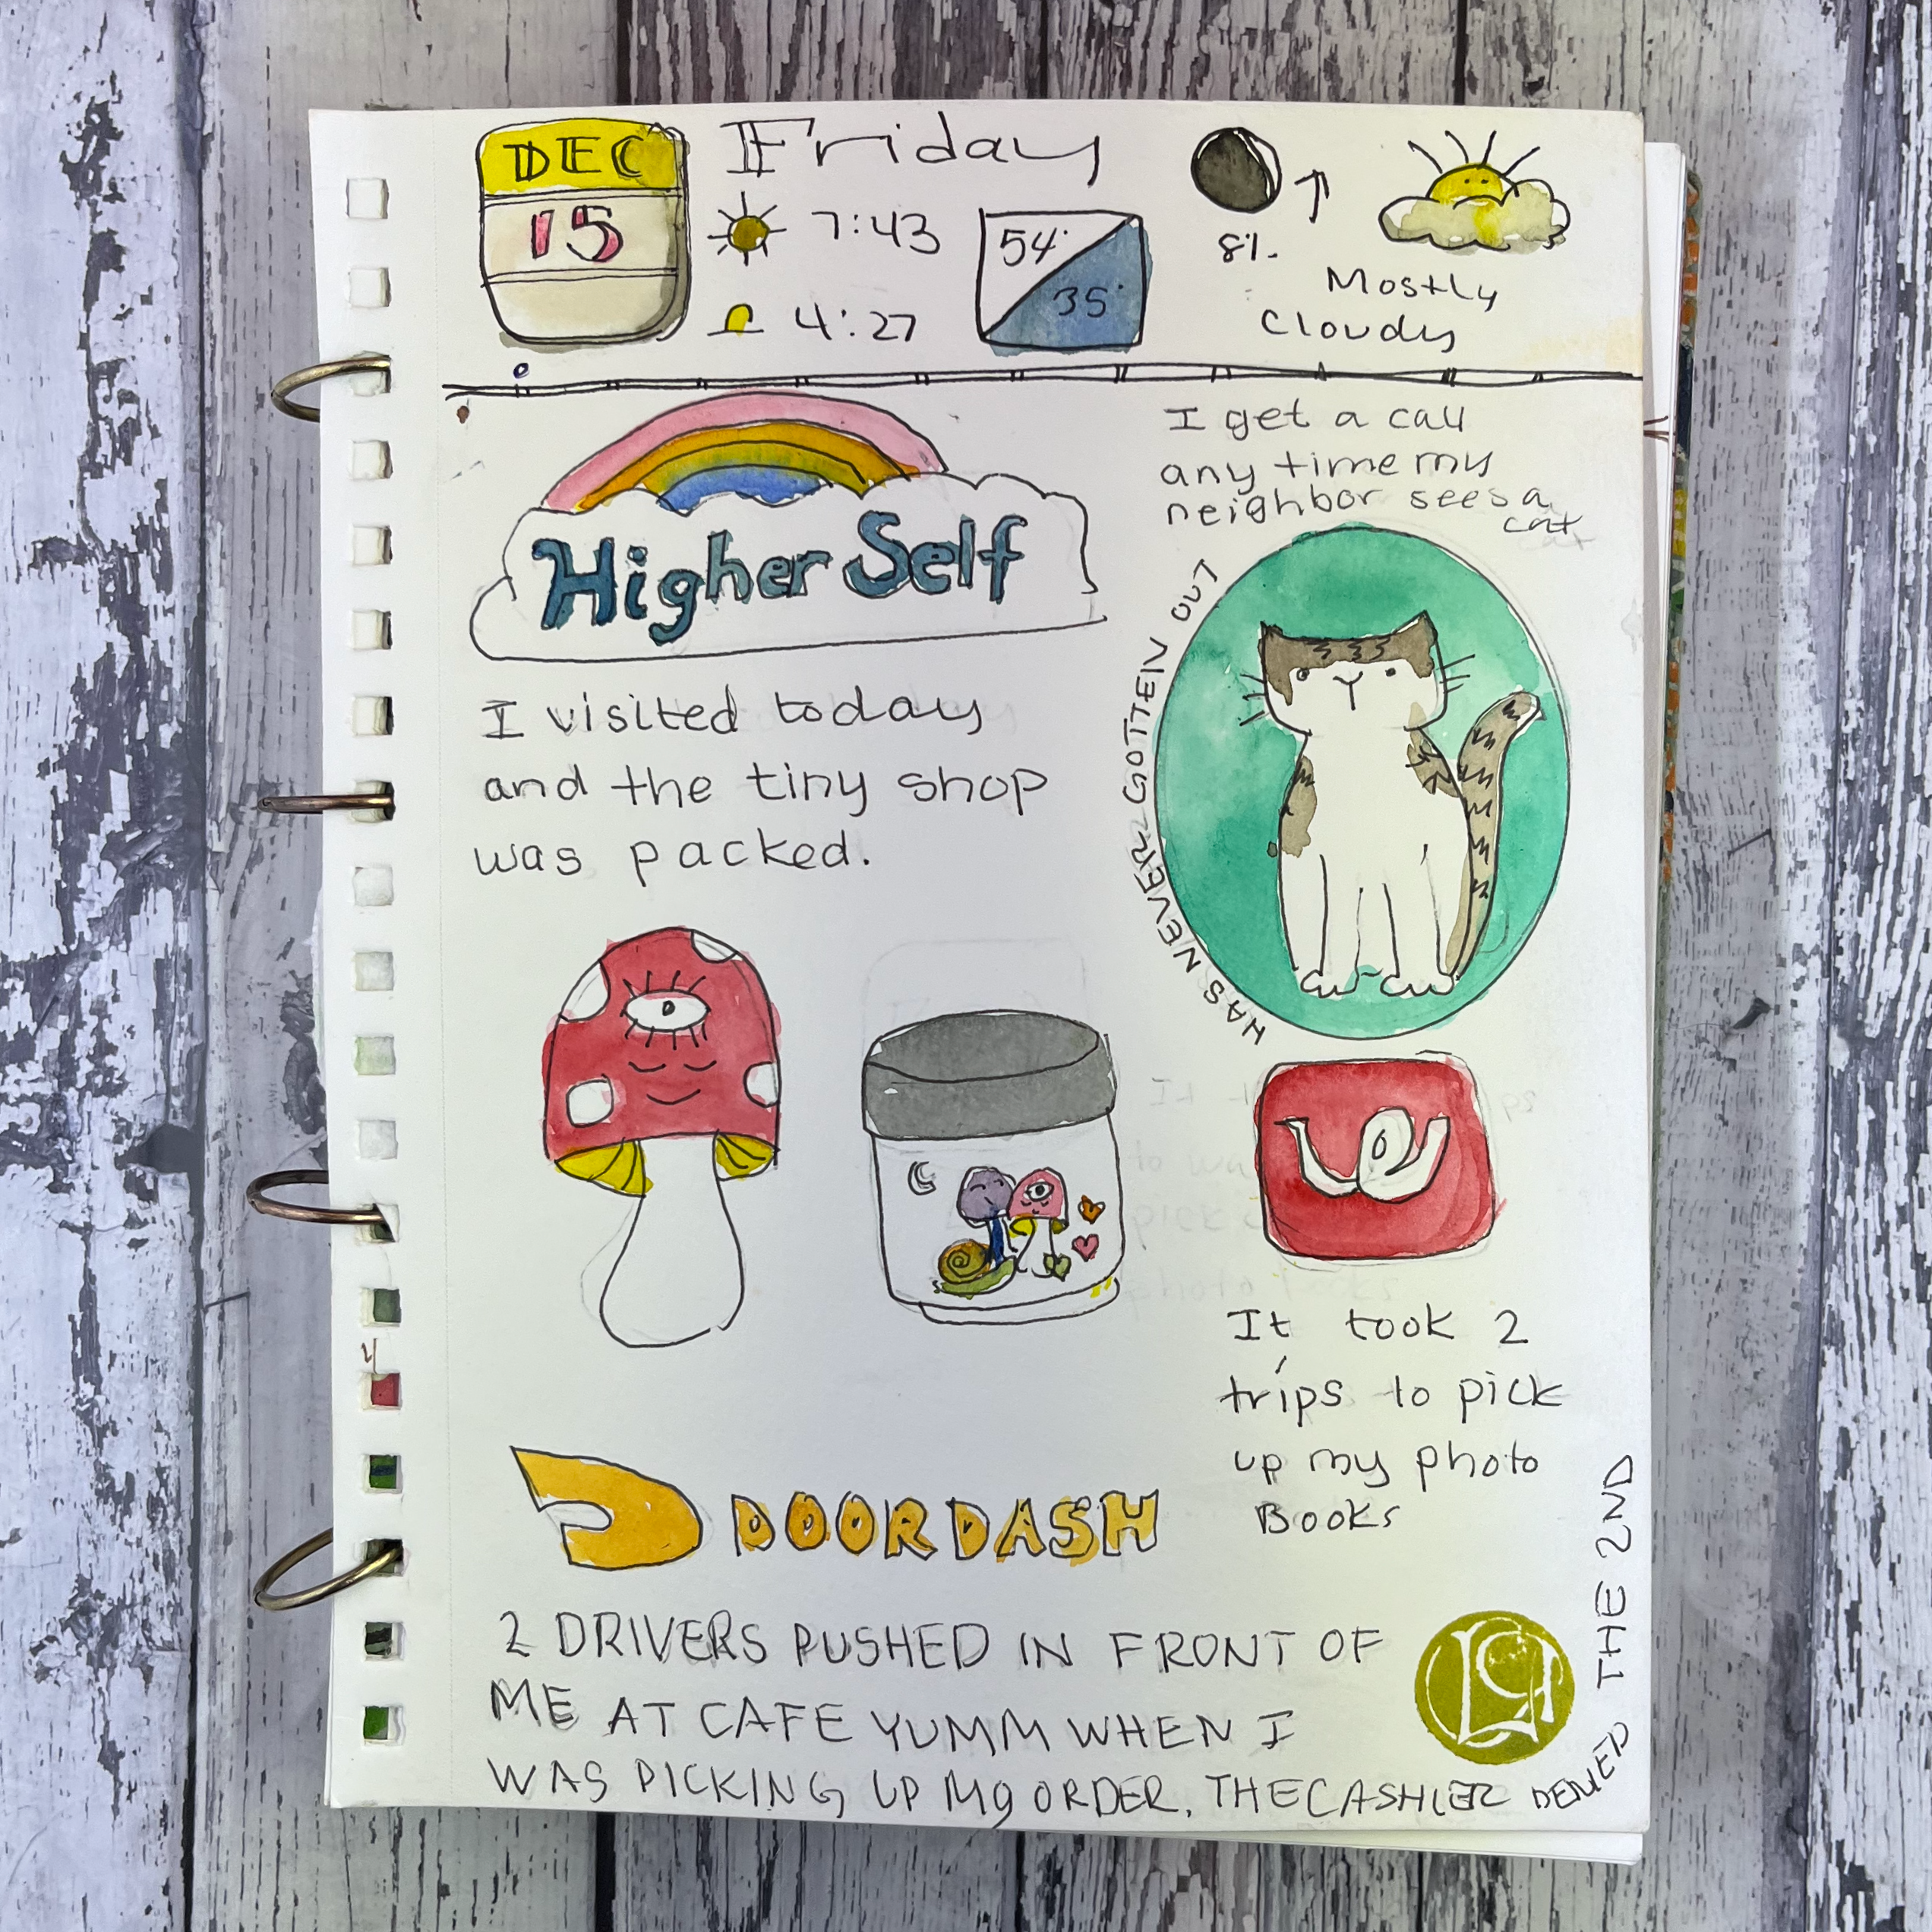 DEC
15
Friday
7:43
4:27
54°
35°
8%
Mostly
Cloudy
Higher Self
I visited today
and the tiny shop
was packed.
I get a call
any time my
neighbor sees a
cat
HAS NEVER GOTTEN OUT
It took 2
trips to pick
up my photo
Books
DOORDASH
2 DRIVERS PUSHED IN FRONT OF
ME AT CAFE YUMM WHEN I
WAS PICKING UP MY ORDER. THE CASHIER DENIED THE 2ND